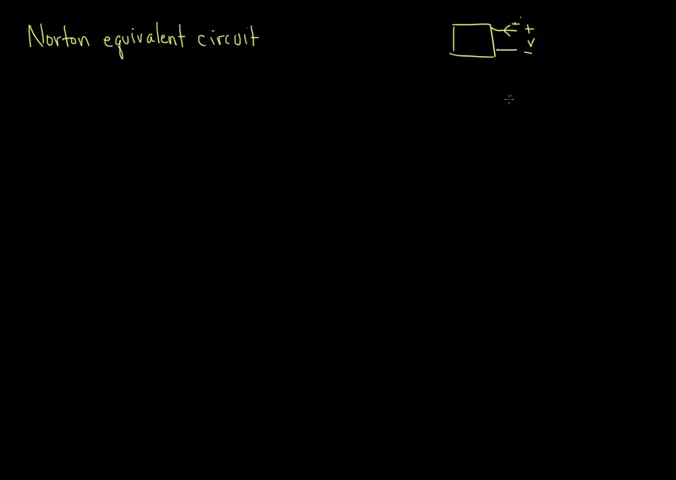 Norton equivalent circuit
i
+
v
-